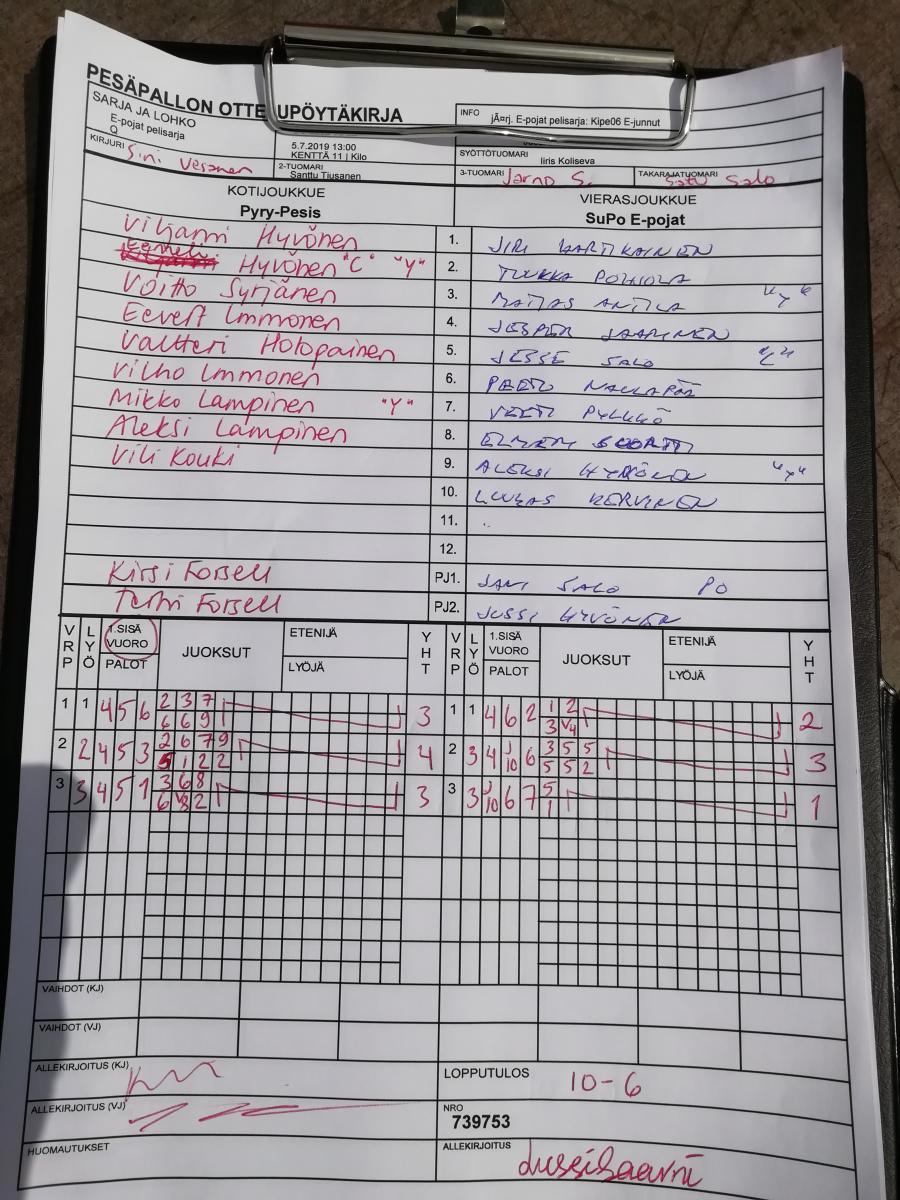 PESÄPALLON OTTELUPÖYTÄKIRJA
SARJA JA LOHKO
E-pojat pelisarja
Q
INFO jÃ¤rj. E-pojat pelisarja: Kipe06 E-junnut
KIRJURI Vesanen
5.7.2019 13:00
KENTTÄ 11 | Kilo
2-TUOMARI
Santtu Tiusanen
SYÖTTÖTUOMARI
Iiris Koliseva
3-TUOMARI Jarno S.
TAKARAJATUOMARI
Satu Salo
KOTIJOUKKUE
Pyry-Pesis
VIERASJOUKKUE
SuPo E-pojat
Viljami Hyvönen 1. JIRI KARTIKAINEN
Eemeli Hyvönen "C" "Y" 2. TUUKKA POHJOLA
Voitto Syrjänen 3. MATIAS ANTILA "Y"
Eevert Immonen 4. JESPER JAARINEN
Valtteri Holopainen 5. JESSE SALO "C"
Vilho Immonen 6. PEETU
Mikko Lampinen "Y" 7. VEETI PYLKKÖ
Aleksi Lampinen 8. ELMERI
Vili Kouki 9. ALEKSI HYVÖNEN "Y"
10. LUUKAS KERVINEN
11.
12.
Kirsi Forsell PJ1. JANI SALO PO
Terhi Forsell PJ2. JUSSI HYVÖNEN
VRP LYÖ 1.SISÄ VUORO PALOT JUOKSUT ETENIJÄ LYÖJÄ YHT VRP LYÖ 1.SISÄ VUORO PALOT JUOKSUT ETENIJÄ LYÖJÄ YHT
1 1 4 5 6 2 3 7 3 1 1 4 6 2 1 2 2
6 6 9 3 V4
2 2 4 5 3 2 6 7 9 4 2 3 4 J10 6 3 5 5 3
5 1 2 2 5 5 2
3 3 4 5 1 3 6 8 3 3 3 J10 6 7 5 1
6 V8 2 1
VAIHDOT (KJ)
VAIHDOT (VJ)
ALLEKIRJOITUS (KJ)
LOPPUTULOS 10-6
ALLEKIRJOITUS (VJ)
NRO
739753
HUOMAUTUKSET
ALLEKIRJOITUS Jussi Saarni